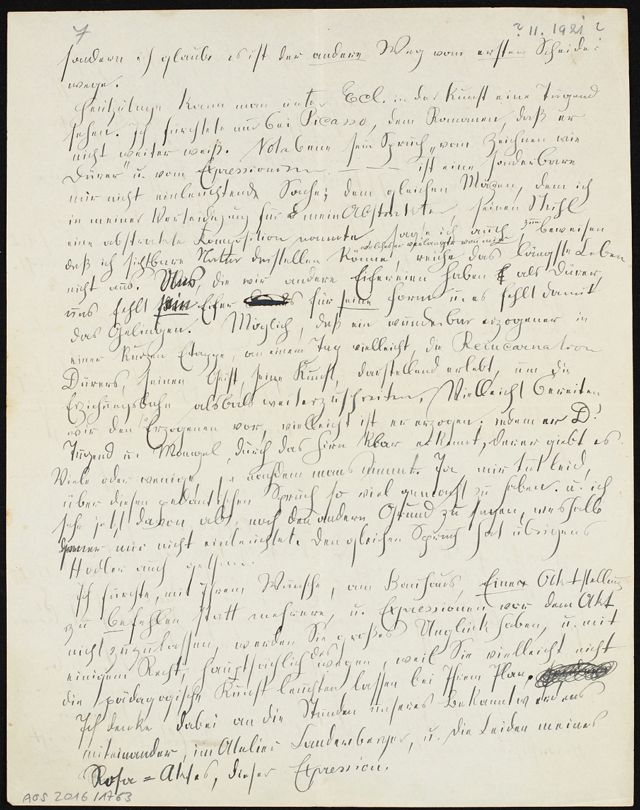 7
? 11. 1921 ?
sondern ich glaube es ist der andere Weg vom ersten Scheide=
wege.
Heutzutage kann man unter Ecl. in der Kunst eine Tugend
sehen. Ich fürchtete nur bei Picasso, dem Romanen, daß er
nicht weiter weiß. Notabene sein Spruch vom Zeichnen wie
Dürer u vom Expressionism ist eine sonderbare
mir nicht einleuchtende Sache; dem gleichen Magen, dem ich
in meiner Verteidigung für mein Abstraktes, seinen Stuhl
eine abstrakte Komposition nannte, sage ich auch zum beweisen
daß ich sichtbare Natur darstellen könne, welches verlangte man mir, reiche das längste Leben
nicht aus. Uns, die wir andere Eifereien haben als Dürer,
uns fehlt sein Eifer für seine Form u. es fehlt damit
das Gelingen. Möglich, daß ein wunderbar erzogener in
einer kurzen Etappe, an einem Tag vielleicht, die Reincarnation
Dürers, seinen Geist, seine Kunst, darstellend erlebt, um die
Erziehungsbahn alsbald weiterzuschreiten. Vielleicht bereiten
wir den Erzogenen vor, vielleicht ist er erzogen. indem er D!
Tugend u. Mangel, durch das Hirn klar erkennt, derer giebt es
Viele oder wenige, je nachdem mans nimmt. Ja, mir tut leid,
über diesen pedantischen Spruch so viel gemacht zu haben. u. ich
sehe jetzt davon ab, noch den andern Grund zu sagen, weshalb
er mir nicht einleuchtete. Den gleichen Spruch hat übrigens
Hodler auch getan.
Ich fürchte, mit Ihrem Wunsche, am Bauhaus, Einer Aktstellung
zu befehlen statt mehrere, u. Expressionen vor dem Akt
nicht zuzulassen, werden Sie großes Unglück haben, u. mit
einigem Recht, hauptsächlich deswegen, weil Sie vielleicht nicht
die pädagogische Kunst leuchten lassen bei Ihrem Plan.
Ich denke dabei an die Stunden unseres Bekanntwerdens
miteinander, im Atelier Landenberger, u. die Leiden meines
Rosa = Aktes, dieser Expression.
AOS 2016/1763